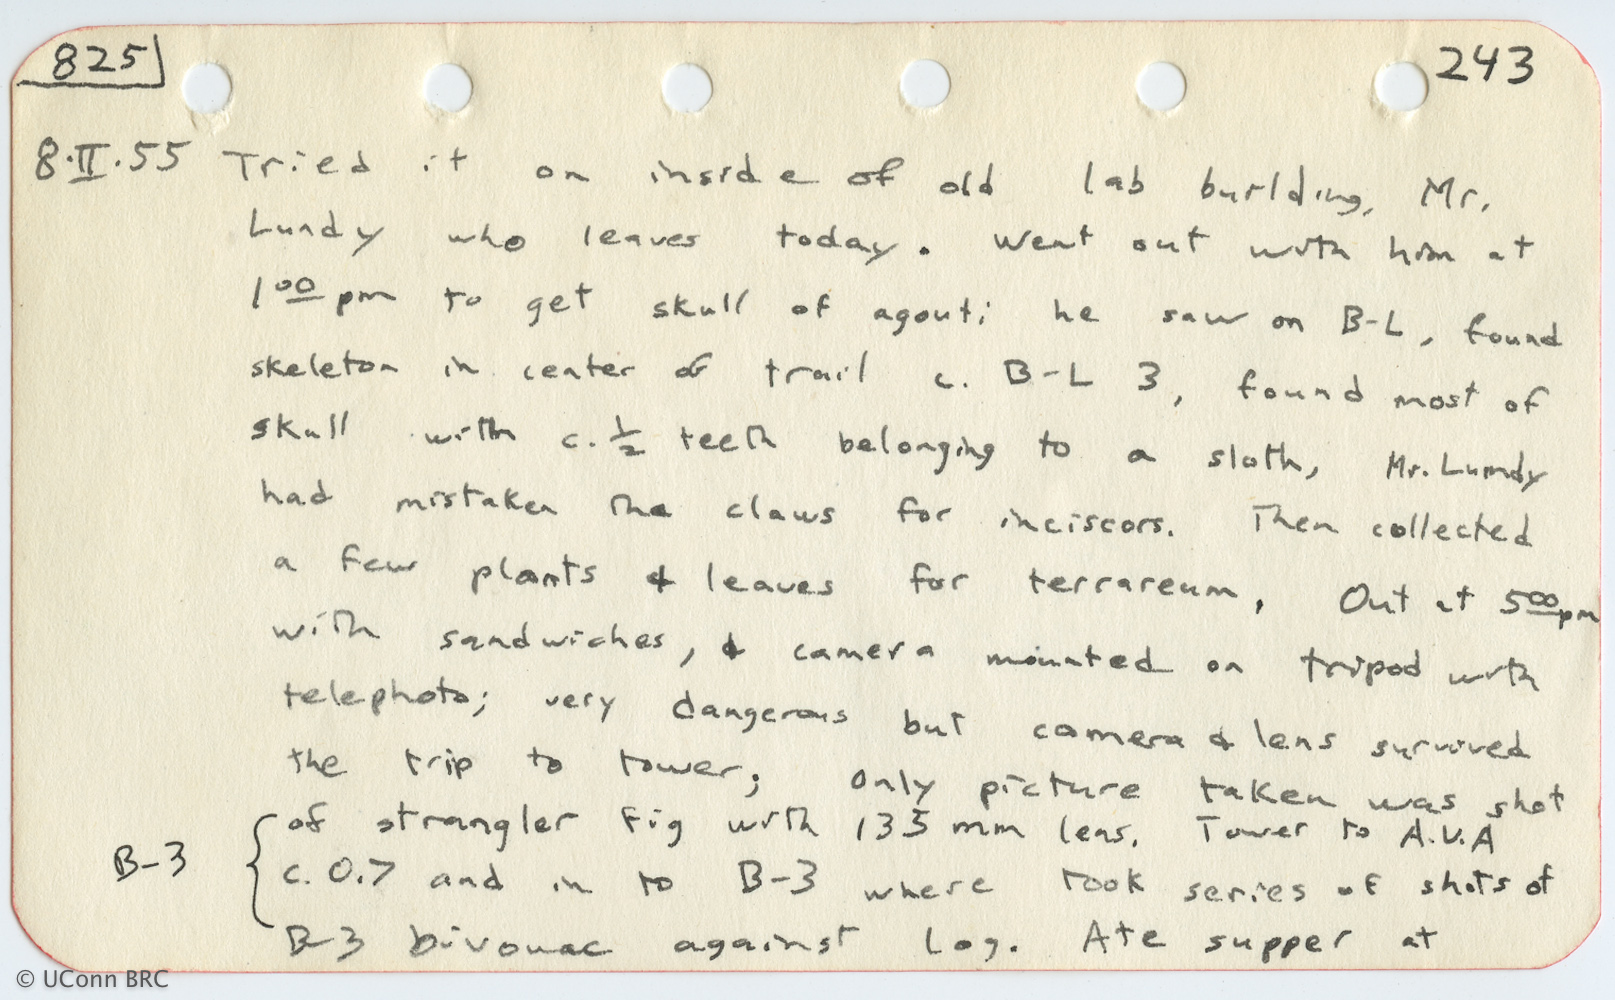 825
243
8·II·55 Tried it on inside of old lab building, Mr.
Lundy who leaves today. Went out with him at
1 00 pm to get skull of agouti he saw on B-L, found
skeleton in center of trail c. B-L 3, found most of
skull with c. 1/2 teeth belonging to a sloth, Mr. Lundy
had mistaken the claws for inciscors. Then collected
a few plants & leaves for terrareum. Out at 5 00 pm
with sandwiches, & camera mounted on tripod with
telephoto; very dangerous but camera & lens survived
the trip to tower; only picture taken was shot
of strangler fig with 135 mm lens. Tower to A.V.A
B-3 { c. 0.7 and in to B-3 where took series of shots of
B-3 bivouac against log. Ate supper at
© UConn BRC